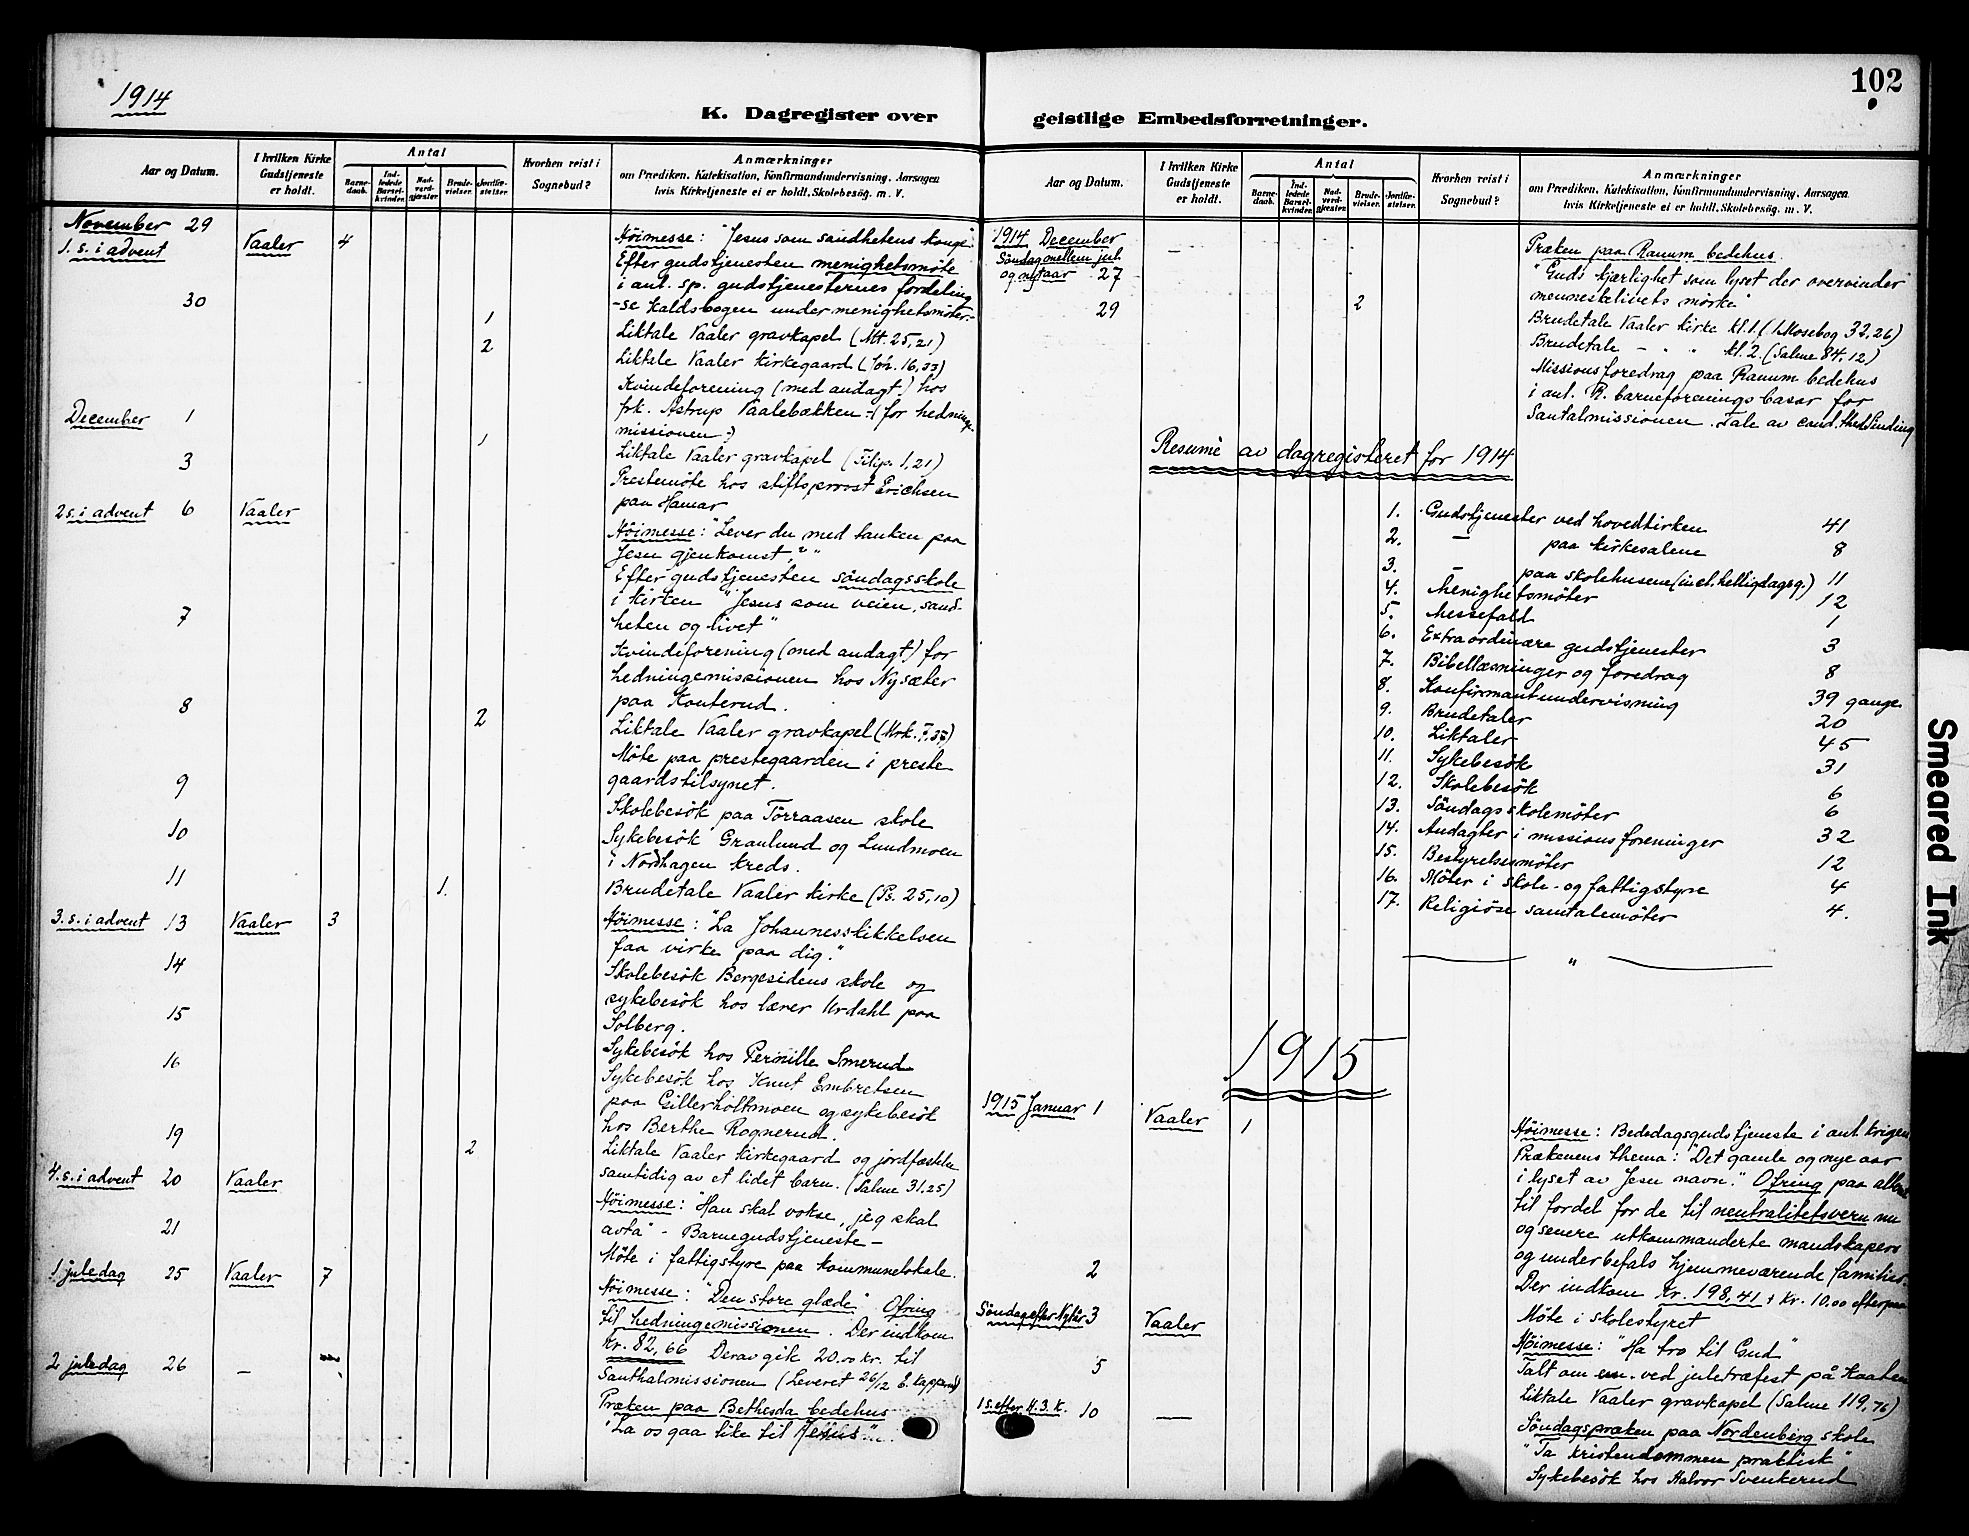 1914
K. Dagregister over
Aar og Datum.
I hvilken Kirke Gudstjeneste er holdt.
Antal
Barnedaab.
Indledede Barselkvinder.
Nadverdgjester.
Brudevielser.
Jordfæstelser.
Hvorhen reist i Sognebud?
Anmærkninger
om Prædiken, Katekisation, Konfirmandundervisning, Aarsagen
hvis Kirketjeneste ei er holdt, Skolebesøg. m. V.
November 29
1. s. i advent Vaaler 4 Höimesse: "Jesus som sandhetens konge"
Efter gudstjenesten menighetsmöte
i ant. sp. gudstjenesternes fordeling
30 -se Kaldsbogen under menighetsmöter.-
1 Liktale Vaaler gravkapel (Mt. 25,21)
2 Liktale Vaaler kirkegaard (Joh. 16,33)
Kvindeforening (med andagt) hos
December 1 frk. Astrup Vaalebækken - (for hedninge-
missionen -)
1 Liktale Vaaler gravkapel (Filip. 1,21)
3 Prestemöte hos stiftsprovst Erichsen
paa Hamar
2 s. i advent 6 Vaaler Höimesse: "Lever du med tanken paa
Jesu gjenkomst?"
Efter gudstjenesten söndagsskole
i kirken "Jesus som veien, sand-
7 heten og livet"
Kvindeforening (med andagt) for
hedningemissionen hos Nysæter
8 paa Konterud.
2 Liktale Vaaler gravkapel (Mrk. 7,37)
Möte paa prestegaarden i preste
9 gaardstilsynet.
Skolebesök paa Törraasen skole
10 Sykebesök Granlund og Lundmoen
i Nordhagen kreds.
11 1. Brudetale Vaaler kirke (Ps. 25,10)
3. s. i advent 13 Vaaler 3 Höimesse: "La Johannesskikkelsen
faa virke paa dig."
14 Skolebesök Bergesidens skole og
sykebesök hos lærer Urdahl paa
15 Solberg.
Sykebesök hos Pernille Smerud
16 Sykebesök hos Knut Embretsen
paa Gillerholtmoen og sykebesök
hos Berthe Rognerud.
19 2 Liktale Vaaler kirkegaard og jordfæstelse
samtidig av et lidet barn. (Salme 31,25)
4. s. i advent 20 Vaaler Höimesse: "Han skal vokse, jeg skal
avta" - Barnegudstjeneste -
21 Möte i fattigstyre paa kommunelokale.
1 juledag 25 Vaaler 7 Höimesse: "Den store glæde" Ofring
til hedningemissionen. Der indkom
Kr. 82,66 Derav gik 20.00 kr. til
2 juledag 26 - Santhalmissionen (Leveret 26/12 E. Kapperud)
Præken paa Bethesda bedehus
"La os gaa like til Jesus"
102
geistlige Embedsforretninger.
Aar og Datum.
I hvilken Kirke Gudstjeneste er holdt.
Antal
Barnedaab.
Indledede Barselkvinder.
Nadverdgjester.
Brudevielser.
Jordfæstelser.
Hvorhen reist i Sognebud?
Anmærkninger
om Prædiken, Katekisation, Konfirmandundervisning, Aarsagen
hvis Kirketjeneste ei er holdt, Skolebesøg. m. V.
1914 December
Söndag mellem jul
og nytaar 27 - Præken paa Ranum bedehus.
"Guds kjærlighet som lyset der overvinder
menneskelivets mörke"
29 2 Brudetale Vaaler kirke kl. 1. (1 Mosebog 32,26)
Brudetale - " - " kl. 2. (Salme 84,12)
Missionsforedrag paa Ranum bedehus
i ant. R. barneforenings basar for
Santalmissionen. Tale av cand. theol Sinding
Resumè av dagregisteret for 1914
1. Gudstjenester ved hovedkirken 41
2. - paa kirkesalene 8
3. - paa skolehusene (incl. helligdagsg.) 11
4. Menighetsmöter 12
5. Messefald 1
6. Extraordinære gudstjenester 3
7. Bibellæsninger og foredrag 8
8. Konfirmantundervisning 39 gange
9. Brudetaler 20
10. Liktaler 45
11. Sykebesök 31
12. Skolebesök 6
13. Söndagsskolemöter 6
14. Andagter i missionsforeninger 32
15. Bestyrelsesmöter 12
16. Möter i skole- og fattigstyre 4
17. Religiöse samtalemöter 4.
"
1915
1915 Januar 1 Vaaler 1 Höimesse: Bededagsgudstjeneste i ant. krigen
Prækenens thema: "Det gamle og nye aar
i lyset av Jesu navn." Ofring paa alteret
til fordel for de til neutralitetsvern nu
og senere utkommanderte mandskapers
og underbefals hjemmeværende familier.
2 Der indkom Kr. 198,41 + Kr. 10.00 efterpaa
Söndag efter Nytår 3 Vaaler Möte i skolestyret
Höimesse: "Ha tro til Gud"
5 Talt om ved juletræfest på Kaaten
Liktale Vaaler gravkapel (Salme 119,76)
1 s. efter H. 3. K. 10 - Söndagspræken paa Nordenberg skole
"Ta kristendommen praktisk"
Sykebesök hos Halvor Svenkerud
Smeared Ink